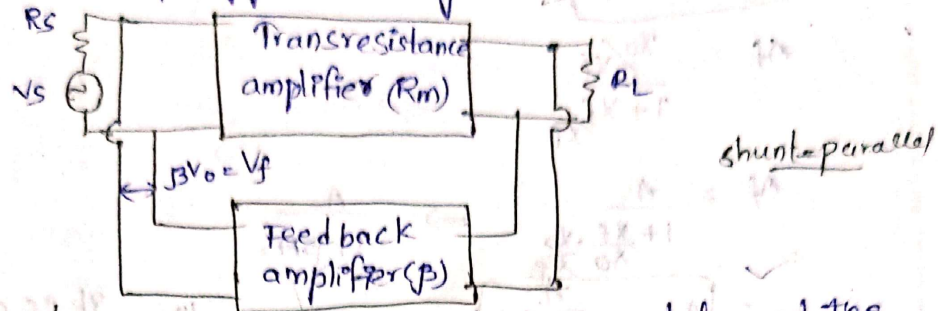 Rs
Transresistance
amplifier (Rm)
Vs
RL
shunt-parallel
βVo = Vf
Feedback
amplifier (β)